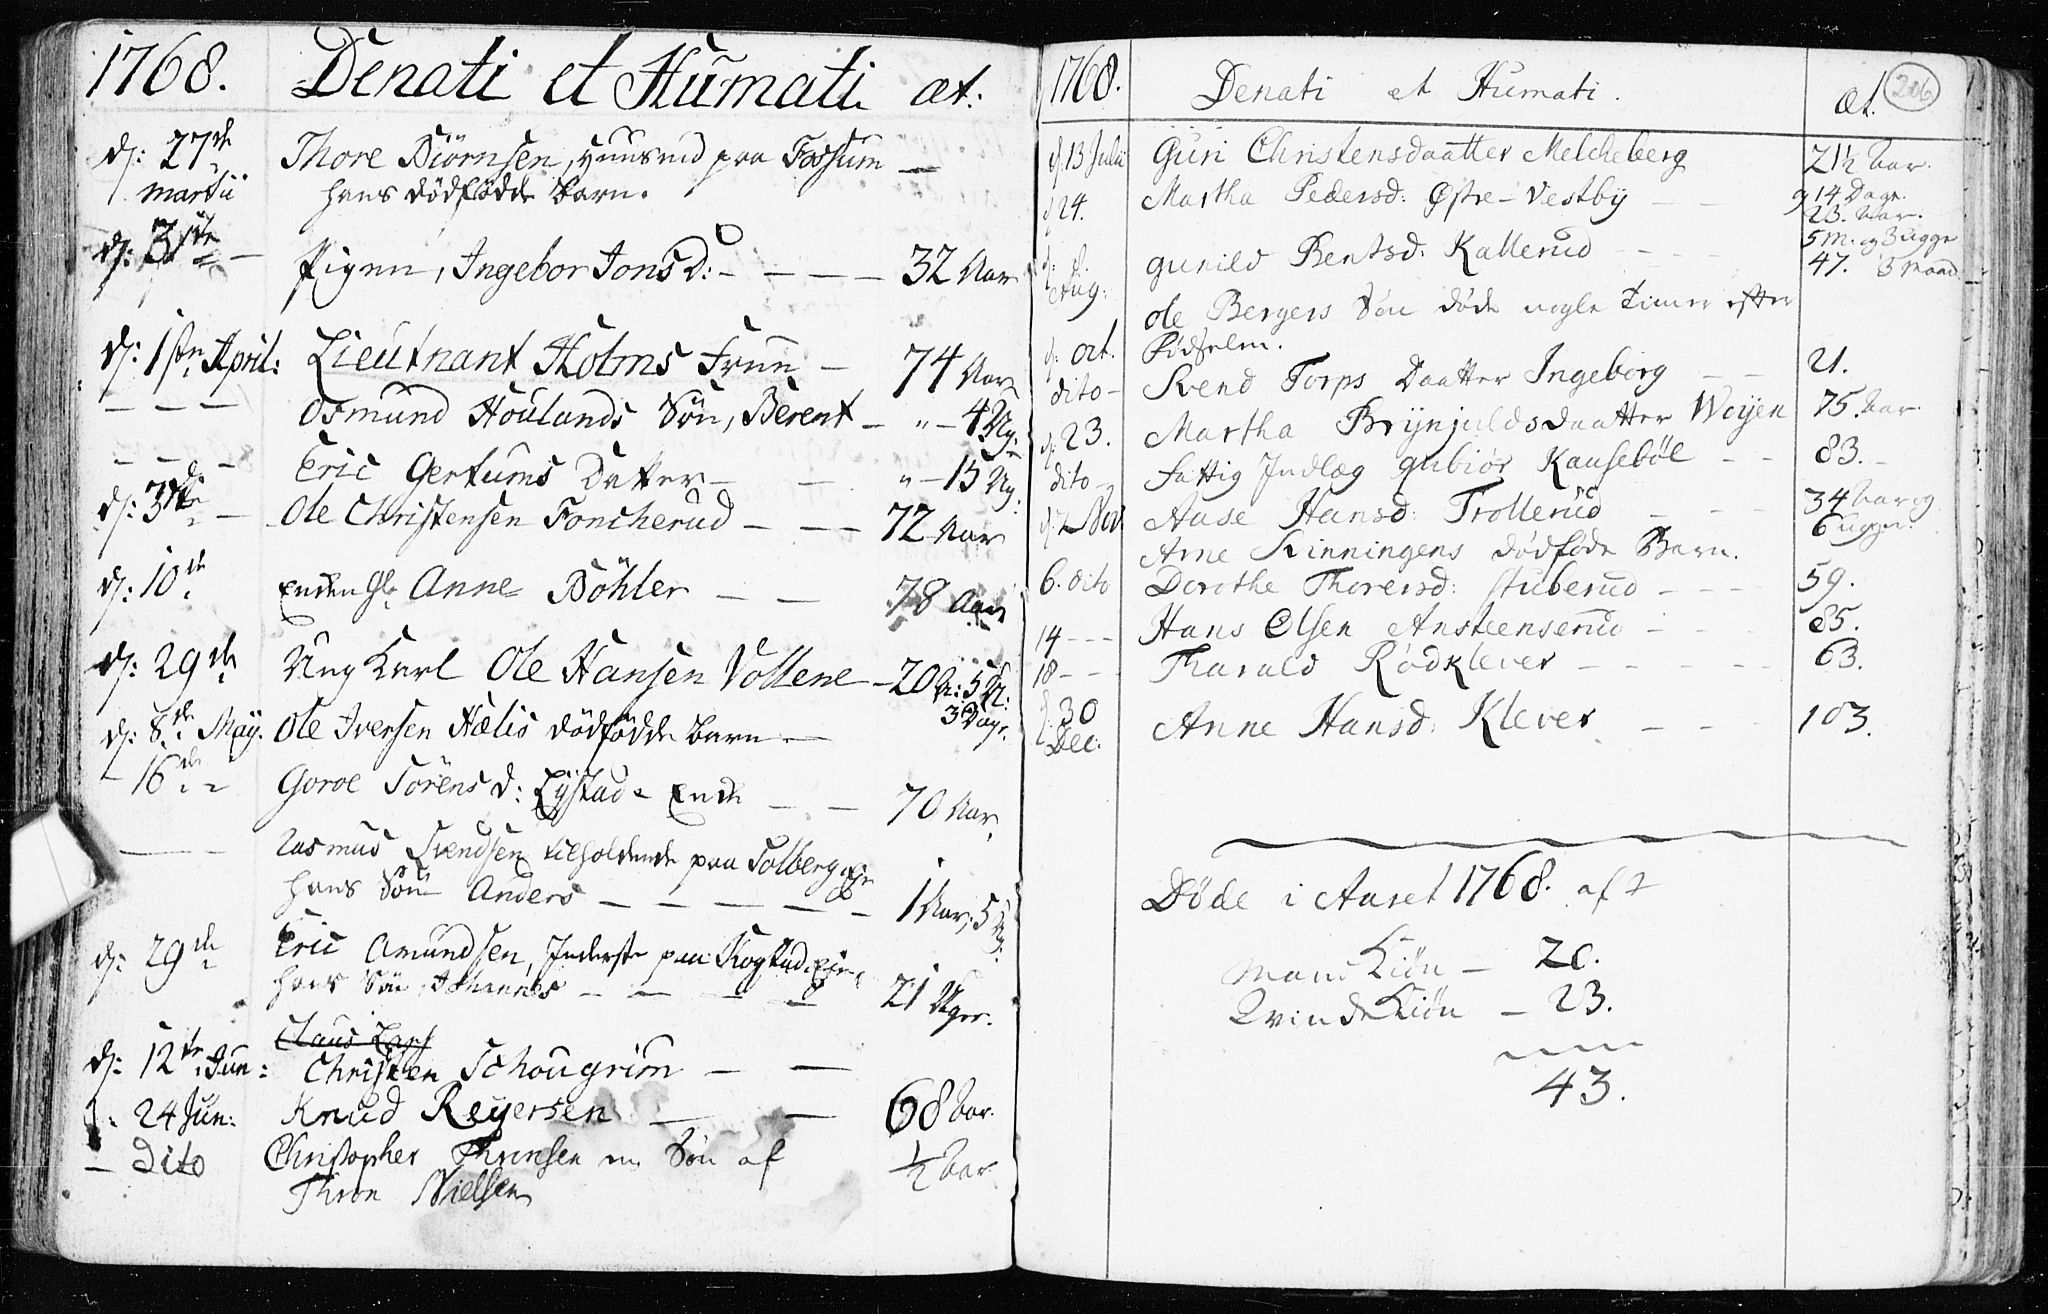 1768. Denati et Humati æt:
d: 27de Thore Biörnsen, Huusmd paa Fossum —
Martii hans dödfödde barn.
d: 31te — Pigen, Ingebor Jons D: — — — — 32 Aar
d: 1ste April: Lieutnant Holms Frue — 74 Aar
— — — Osmund Houlands Sön, Berent — " — 4 Ug:
— — — Eric Gertums Datter — — " — 15 Ug:
d: 3die — Ole Christensen Foncherud — — — 72 Aar
d: 10de Enken Anne Böhler — — 78 Aar
d: 29de Ung Karl Ole Hansen Vollene — 20 A: 5 U:
3 Dage.
d: 8de May. Ole Iversen Hælis dödfödde barn —
— 16de Goroe Sörens D: Eystad — Enke — — 70 Aar
— — Rasmus Svendsen tilholdende paa Solberg Eje
hans Sön Anders — — — — — 1 Aar, 5 Ug:
d: 29de Eric Amundsen, Inderste paa Kogstad Eje
hans Sön, Johannes — — — — 21 Uger.
Claus Lars
d: 12te Jun: Christen Schougrim — —
d: 24 Jun: Knud Reyersen — — 68 Aar.
— Dito Christopher Thronsen en Sön af ½ Aar
Thron Nielsen
1768. Denati et Humati. æt. 206
d. 13 Julii Guri Christensdaatter Melcheberg 21½ Aar.
d 24. Martha Pedersd: Østre-Vestby — — 14 Dage.
23. Aar.
5 M. og 3 Ugge
d: Aug: Gunild Bentsd: Kallerud — — — 47. 3 Maan
Ole Bergers Sön döde nogle Timer efter
Födselen.
d: Oct.
dito — Svend Torps Daatter Ingeborg — — 21.
d: 23. Martha Brynjuldsdaatter Woyen 75. Aar.
dito — Fattig Indlæg Gubiør Kausebøl — — 83. —
d: 7 Nov Aase Hansd: Trollerud — — — 34 Aar og
6 Uger.
Arne Kinningens dödföde Barn.
6. dito Dorothe Thoresd: Stuberud — — — 59.
14 — — — Hans Olsen Anstenserud — — 85.
18 — — Tharald Rødklever — — — — — 63.
d. 30 Dec: Anne Hansd: Klever — — — 103.
Døde i Aaret 1768. af
MandKiön — 20.
QvindeKiön — 23.
43.